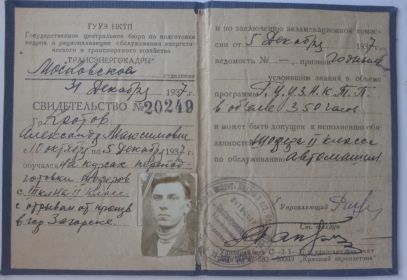 ГУУЗ НКТП
Государственное центральное бюро по подготовке
кадров и рационализации обслуживания энергети-
ческого и транспортного хозяйства
"ТРАНСЭНЕРГОКАДРЫ"
Московское отделение
Декабря 1937 г.
СВИДЕТЕЛЬСТВО № 20249
Гр.
Александр Максимович
с 10 октября по 5 Декабря 1937 г.
обучался на курсах перепод-
готовки шоферов
II
с отрывом от произв.
в гор Загорске
и по заключению экзаменационной комис-
сии от 5 Декабря 1937 г.
ведомость № — признан годным
усвоившим знания в объеме
программы Г.У.У.З. Н.К.Т.П.
в объеме 350 часов
и может быть допущен к исполнению обя-
занностей шофера II класса
по обслуживанию автомашин
Управляющий